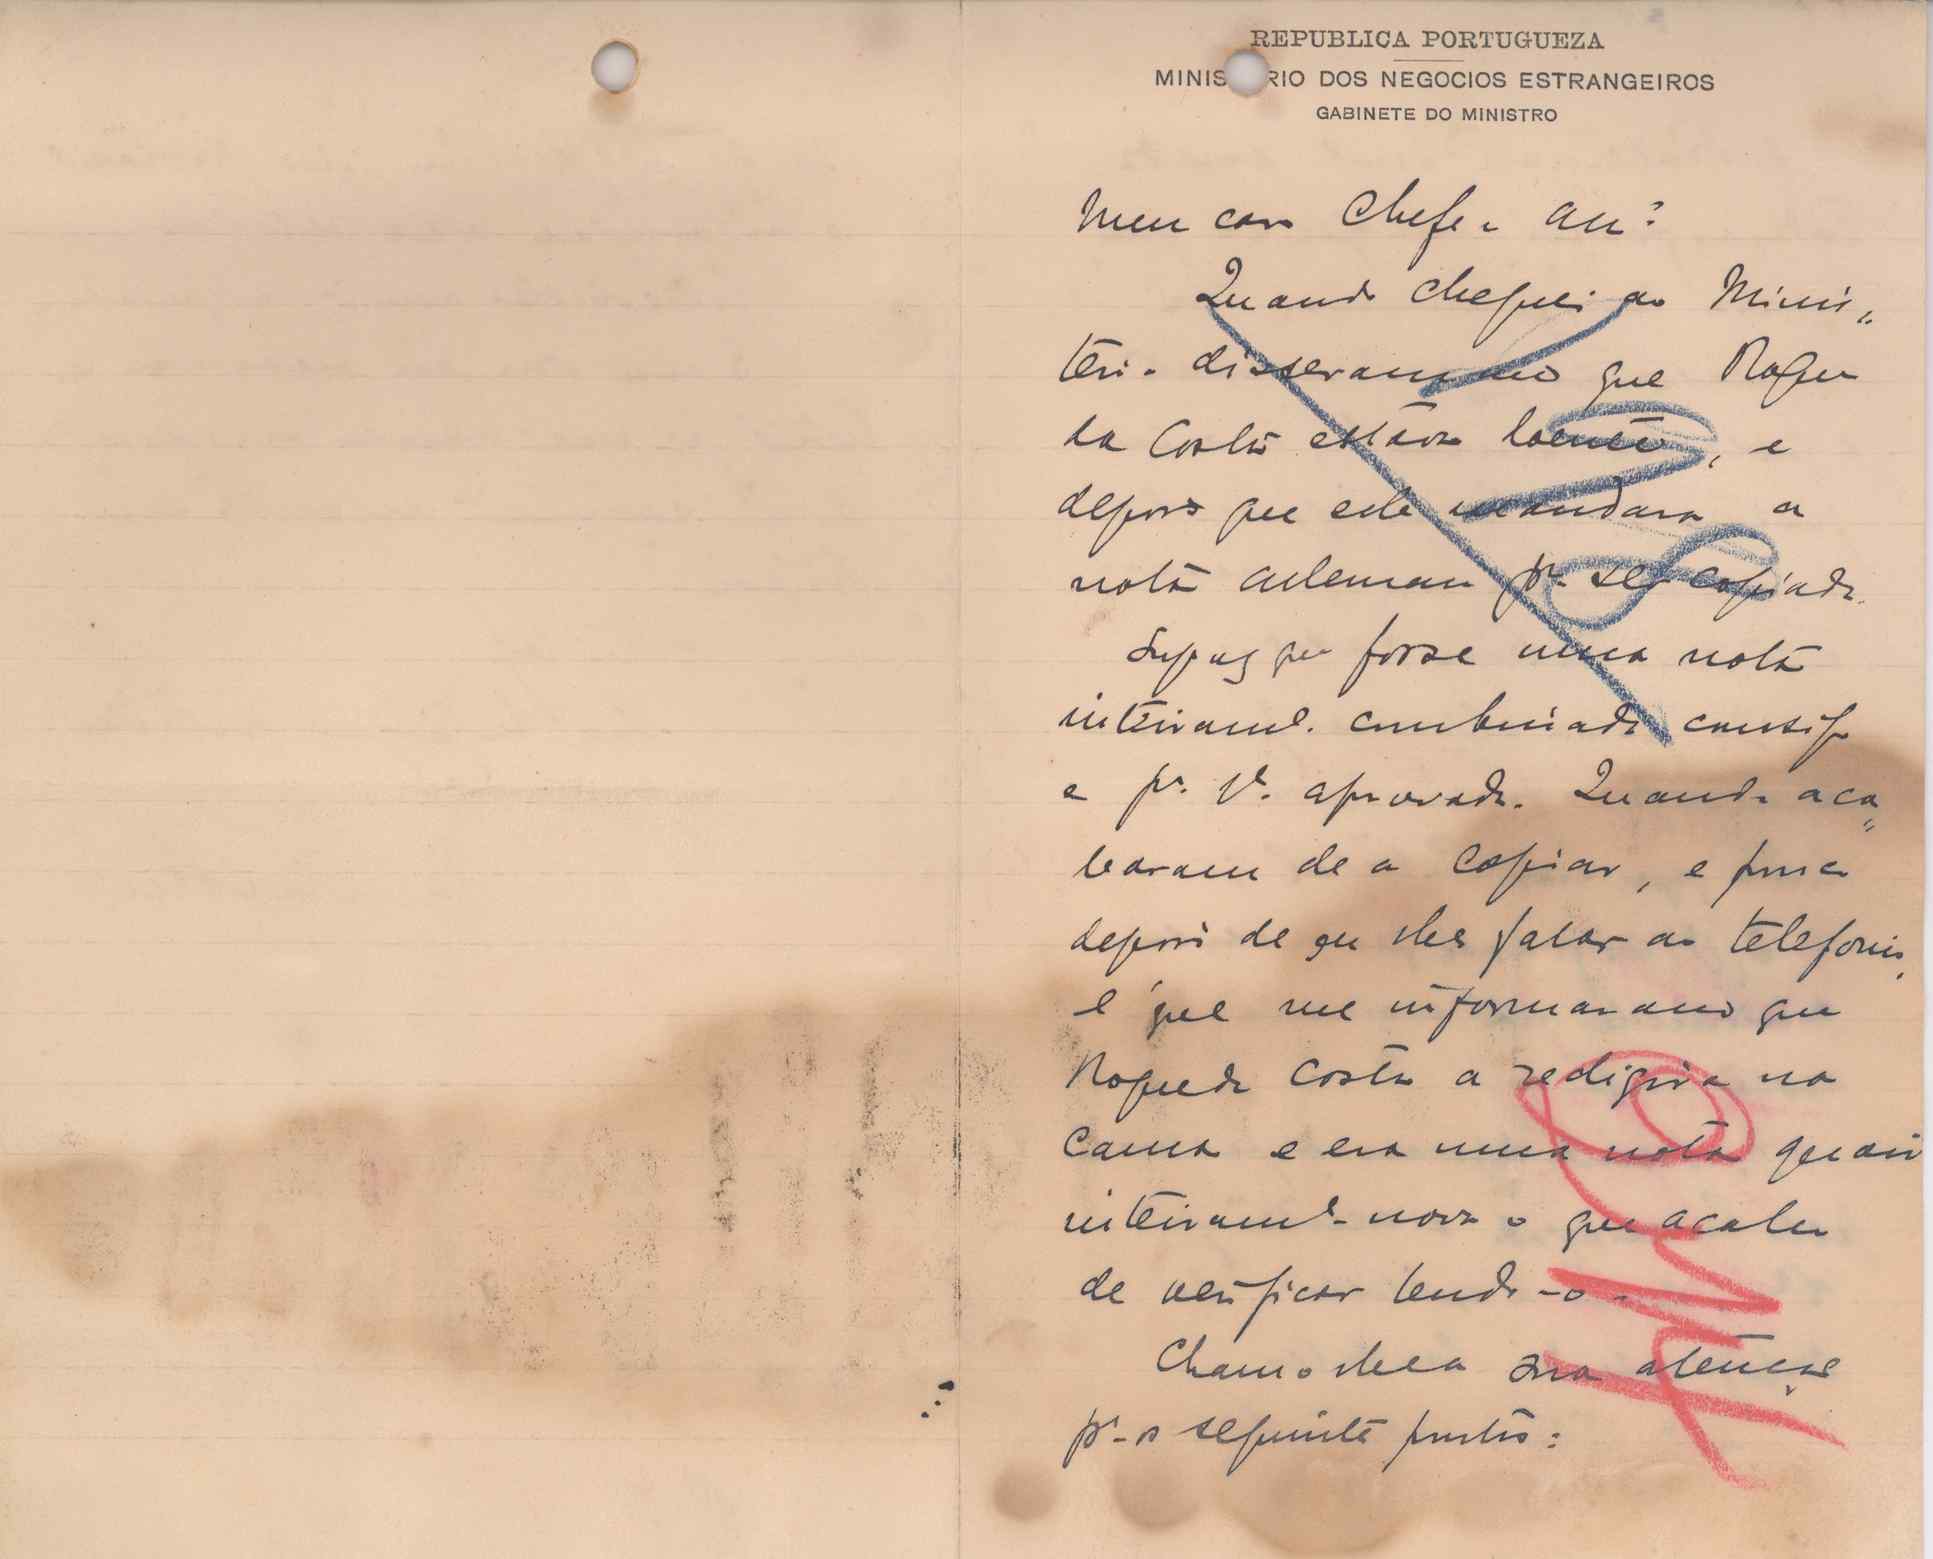 REPUBLICA PORTUGUEZA
MINISTERIO DOS NEGOCIOS ESTRANGEIROS
GABINETE DO MINISTRO
Meu caro Chefe e Am.º
Quando cheguei ao Minis-
terio disseram-me que Roque
da Costa estava doente, e
depois que ele mandara a
nota aleman pª ser copiada.
Supuz que fosse uma nota
inteiramte. combinada consigo
e pr. Vê. aprovada. Quando aca-
baram de a copiar, e pouco
depois de eu lhe falar ao telefone,
é que me informaram que
Roque da Costa a redigira na
cama e era uma nota quasi
inteiramte nova o que acabo
de verificar lendo-o.
Chamo-lhe a sua atenção
pª os seguintes pontos: